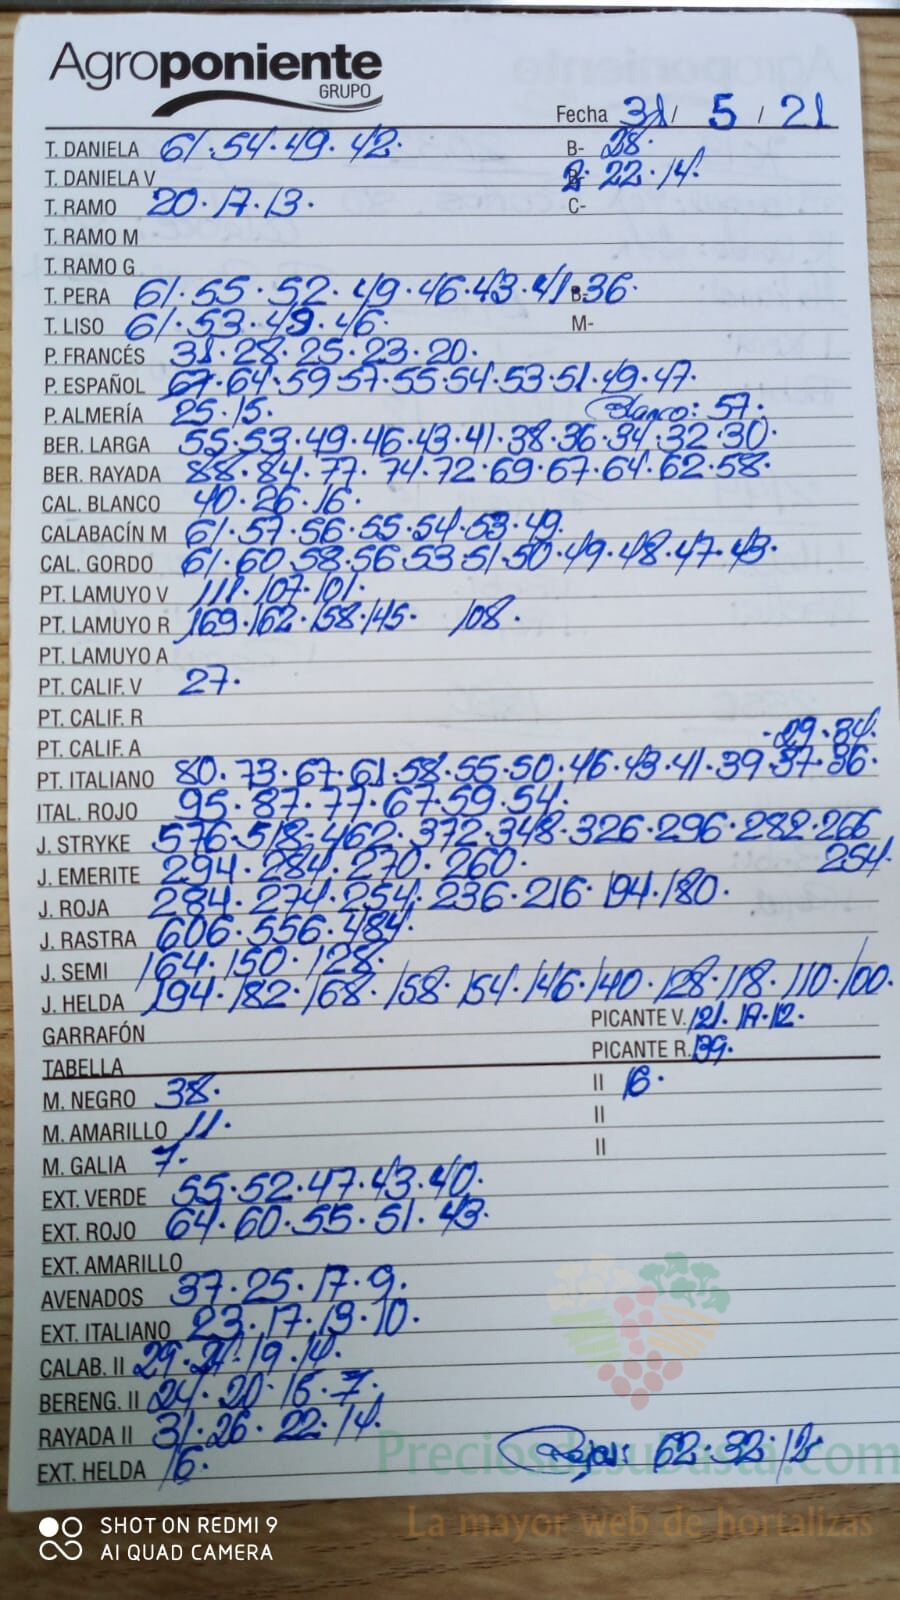 Agroponiente
GRUPO
Fecha 31 / 5 / 21
T. DANIELA 61·54·49·42· B- 28·
T. DANIELA V 22·14·
T. RAMO 20·17·13· C-
T. RAMO M
T. RAMO G
T. PERA 61·55·52·49·46·43·41·36·
T. LISO 61·53·49·46· M-
P. FRANCÉS 31·28·25·23·20·
P. ESPAÑOL 67·64·59·57·55·54·53·51·49·47·
P. ALMERÍA 25·15· Blanco: 57·
BER. LARGA 55·53·49·46·43·41·38·36·34·32·30·
BER. RAYADA 88·84·77·74·72·69·67·64·62·58·
CAL. BLANCO 40·26·16·
CALABACÍN M 61·57·56·55·54·53·49·
CAL. GORDO 61·60·58·56·53·51·50·49·48·47·43·
PT. LAMUYO V 111·107·101·
PT. LAMUYO R 169·162·158·145· 108·
PT. LAMUYO A
PT. CALIF. V 27·
PT. CALIF. R
PT. CALIF. A ·29·34·
PT. ITALIANO 80·73·67·61·58·55·50·46·43·41·39·37·36·
ITAL. ROJO 95·87·77·67·59·54·
J. STRYKE 576·518·462·372·348·326·296·282·266
J. EMERITE 294·284·270·260· 254·
J. ROJA 284·274·254·236·216·194·180·
J. RASTRA 606·556·484·
J. SEMI 164·150·128·
J. HELDA 194·182·168·158·154·146·140·128·118·110·100·
GARRAFÓN PICANTE V. 121·17·12·
TABELLA PICANTE R. 139·
M. NEGRO 38· II 16·
M. AMARILLO 11· II
M. GALIA 7· II
EXT. VERDE 55·52·47·43·40·
EXT. ROJO 64·60·55·51·43·
EXT. AMARILLO
AVENADOS 37·25·17·9·
EXT. ITALIANO 23·17·13·10·
CALAB. II 29·21·19·14·
BERENG. II 24·20·15·7·
RAYADA II 31·26·22·14·
EXT. HELDA 16· Rojos: 62·32·12·
Preciosdesubasta.com
La mayor web de hortalizas
SHOT ON REDMI 9
AI QUAD CAMERA